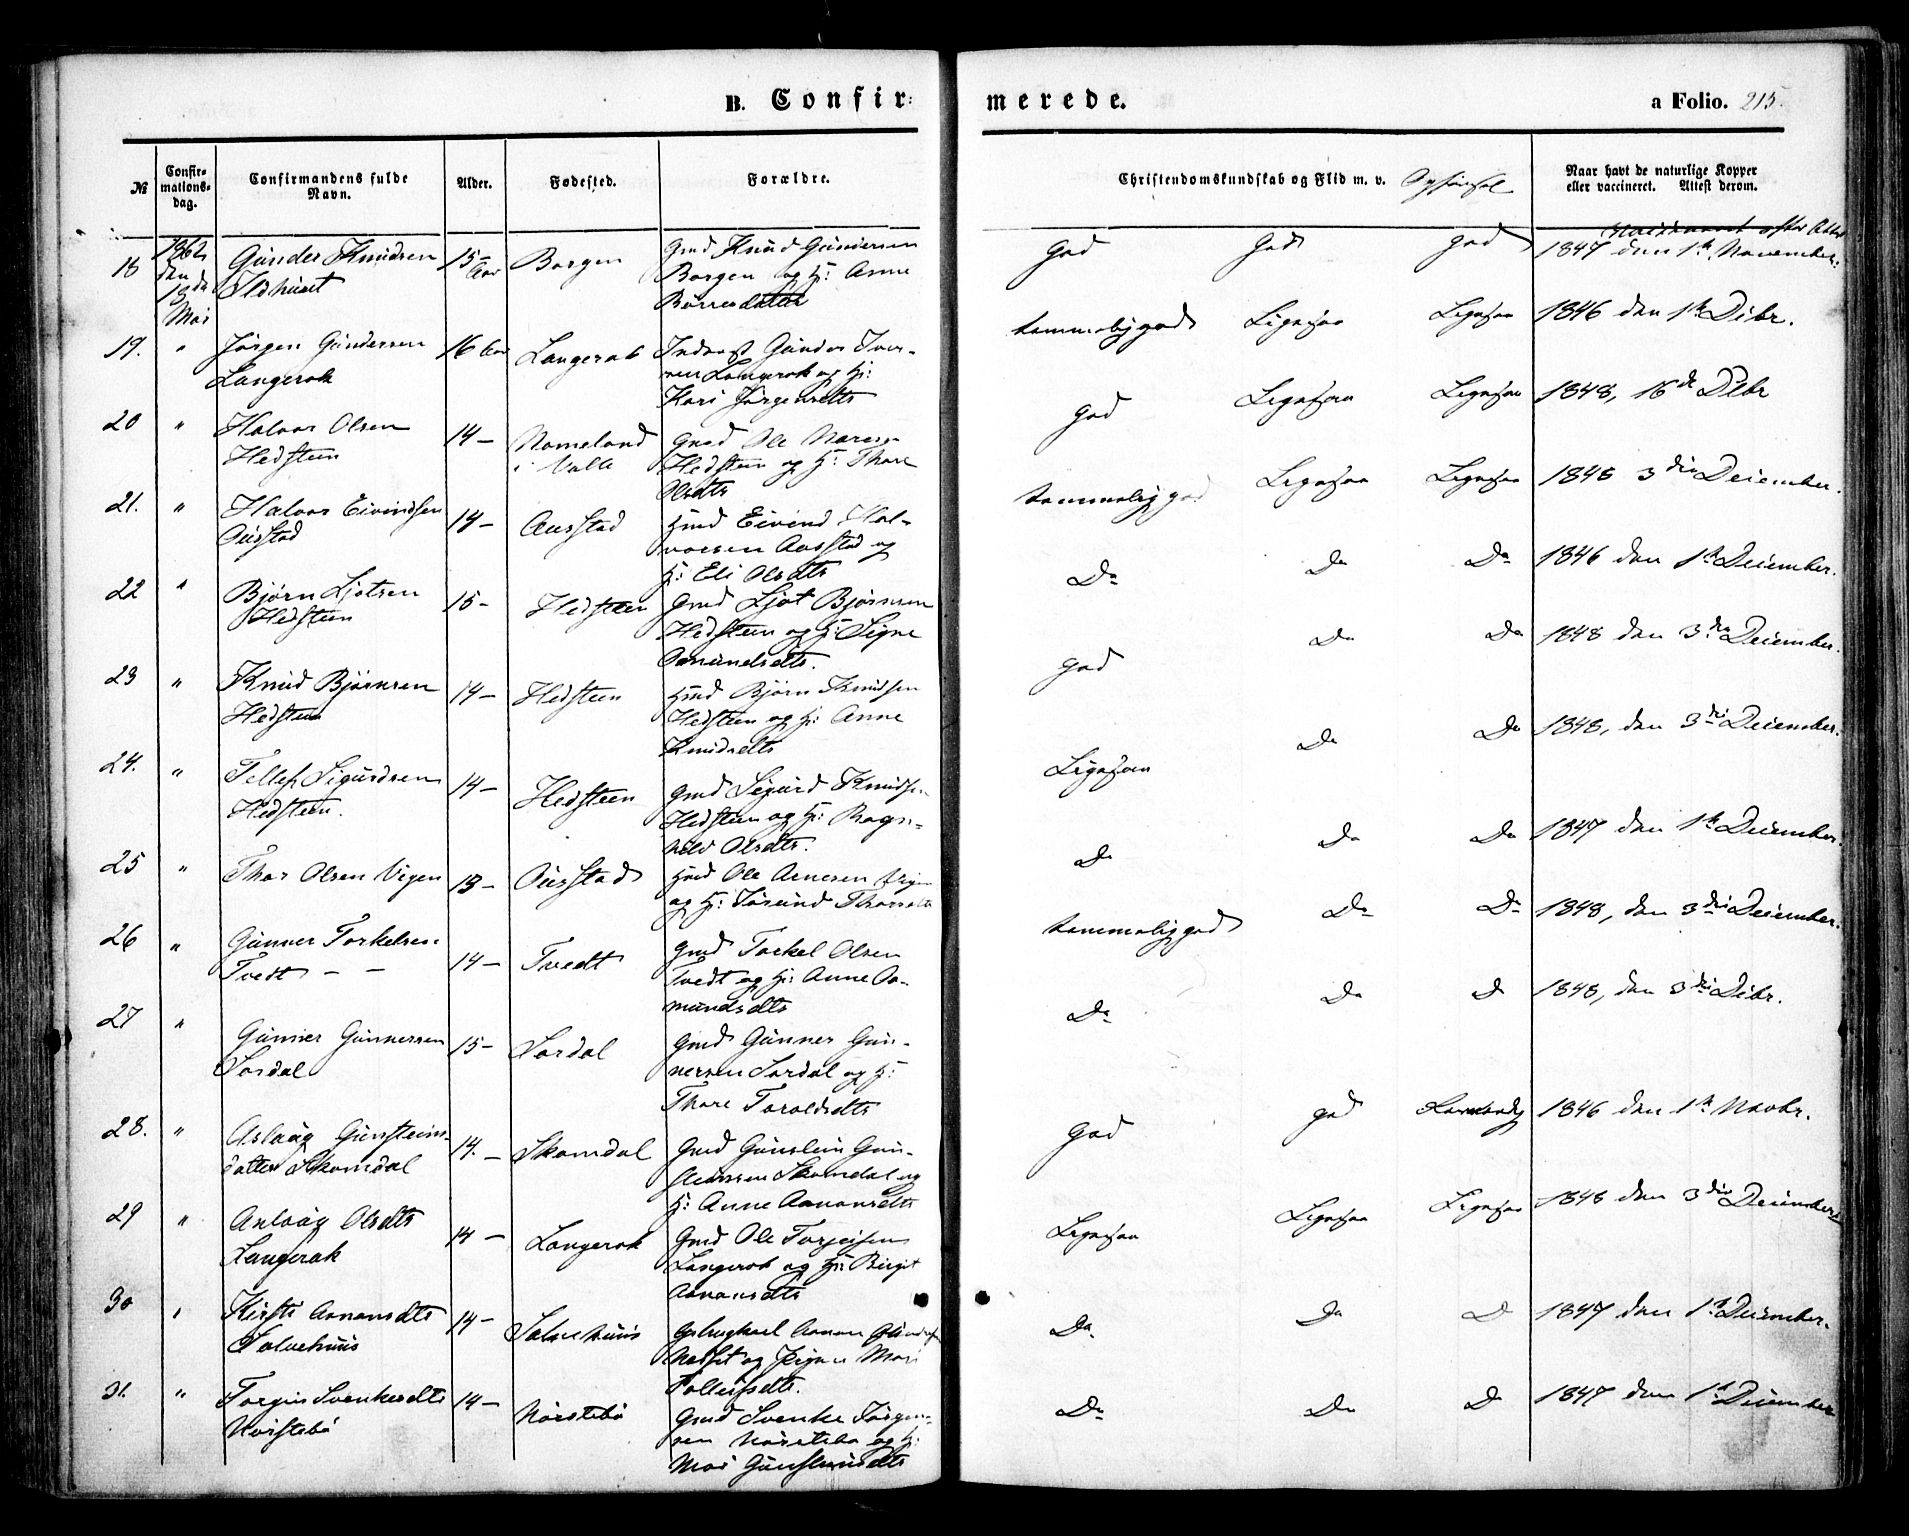 B. Confir-
merede.
a Folio. 215.
№
Confir-
mations-
dag.
Confirmandens fulde
Navn.
Alder.
Fødested.
Forældre.
Christendomskundskab og Flid m. v. Opførsel
Naar havt de naturlige Kopper
eller vaccineret. Attest derom.
18
1862
den
18de
Mai
Gunder Knudsen
15-
Aar
Borgen
Gmd Knud Gundersen
Borgen og H: Anne
Børresdatter
God
God
God
1847 den 1te November.
19.
"
Jørgen Gundersen
Langerak
16 Aar
Langerak
Inderst Gunder Iver-
sen Langerak og H:
Kari Jørgensdtr
temmelig god
Ligesaa
Ligesaa
1846 den 1te Decbr.
20
"
Halvor Olsen
Hedsteen
14-
Nomeland
i Valle
Gmd Ole
Hedsteen og H: Thore
Olsdtr
God
Ligesaa
Ligesaa
1848, 16de Decbr
21.
"
Halvor Eivindsen
Ousstad
14-
Ausstad
Hmd Eivind Hal-
vorsen Ausstad og
H: Eli Olsdtr
temmelig god
Ligesaa
Ligesaa
1848 3die December.
22
"
Bjørn Ljotsen
Hedsteen
15-
Hedsteen
Gmd Ljot Bjørnsen
Hedsteen og H: Signe
Aamundsdtr.
Do
Do
Do
1846 den 1te December.
23
"
Knud Bjørnsen
Hedsteen
14-
Hedsteen
Hmd Bjørn Knudsen
Hedsteen og H: Anne
Knudsdtr
God
Do
Do
1848 den 3die December.
24.
"
Tellef Sigurdsen
Hedsteen.
14-
Hedsteen
Gmd Sigurd Knudsen
Hedsteen og H: Ragn-
hild Olsdtr.
Ligesaa
Do
Do
1848, den 3die December.
25
"
Thor Olsen Vigen
13-
Ousstad
Hmd Ole Arnesen Vigen
og H: Jorund Thorsdtr
Do
Do
Do
1847 den 1te December.
26
"
Gunner Torkelsen
Tvedt - -
14-
Tvedt
Gmd Torkel Olsen
Tvedt og H: Anne Aa-
mundsdtr
temmelig god
Do
Do
1848, den 3die December.
27
"
Gunner Gunnersen
Sordal
15-
Sordal
Gmd Gunner Gun-
nersen Sordal og H:
Thore Taraldsdtr
Do
Do
D
1848, den 3die Decbr.
28.
"
Aslaug Gunsteins-
datter Skomdal
14.-
Skomdal
Gmd Gunstein Gun-
steinsen Skomdal og
H: Anne Aanonsdtr
God
god
1846 den 1te Novbr.
29
"
Aslaug Olsdtr
Langerak
14-
Langerak
Gmd Ole Torjeisen
Langerak og H: Birgit
Aanonsdtr
Ligesaa
Ligesaa
Ligesaa
1848 den 3die December
30
"
Kirsti Aanonsdtr
Salvehuus
14-
Salvehuus
Aanon
og Pigen Mari
Tollefsdtr.
Do
Do
D
1847 den 1te December.
31.
"
Torgun Svenkesdtr
Norstebø
14-
Norstebø
Gmd Svenke Jørgen-
sen Norstebø og H:
Mari Gunsteinsdtr
Do
Do
D
1847 den 1te December